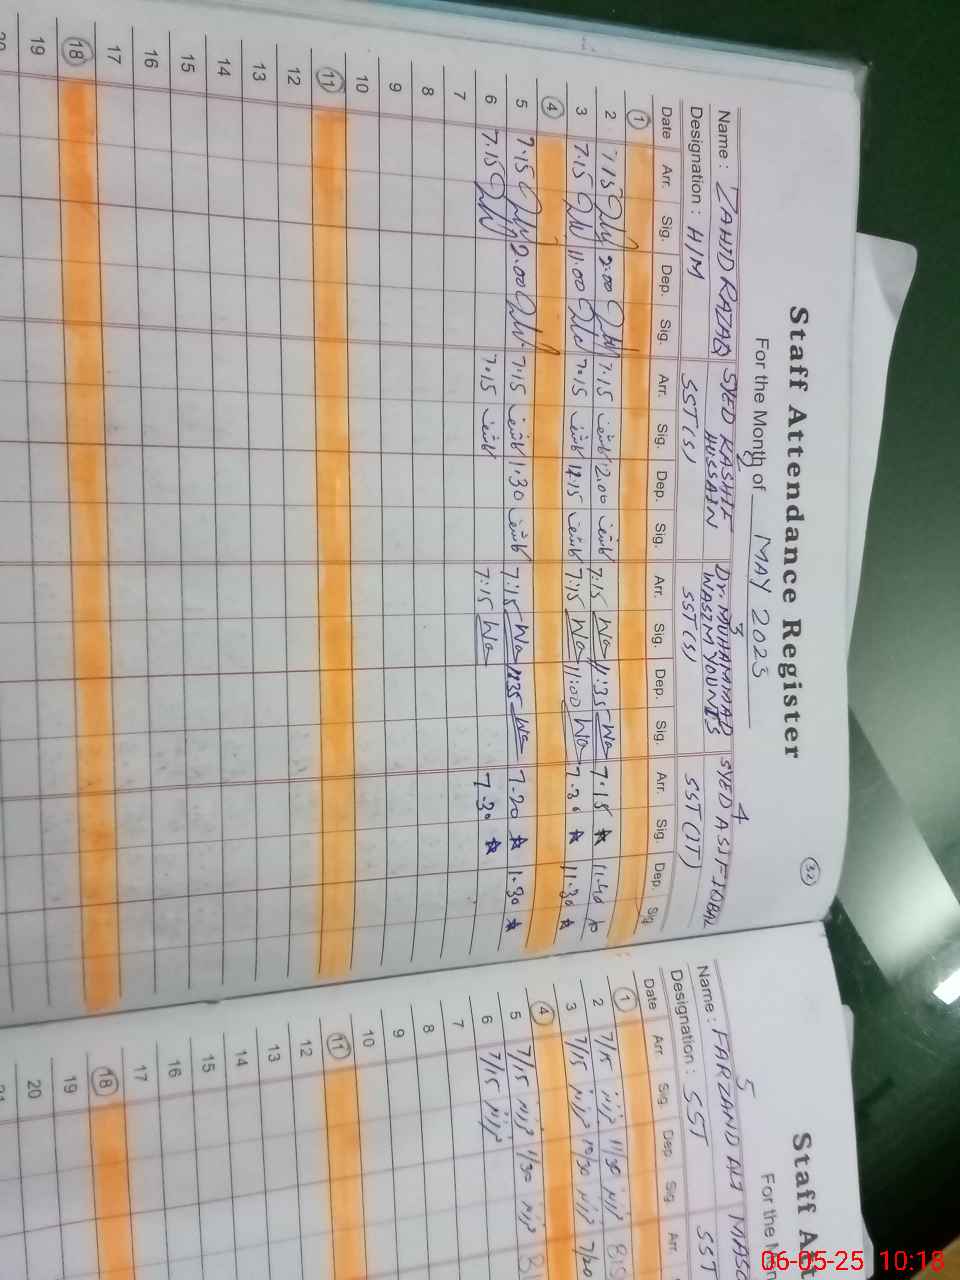 Staff Attendance Register
32
For the Month of MAY 2025
Name: ZAHID RAZAQ SYED KASHIF HUSSAIN 3 Dr. MUHAMMAD WASIM YOUNIS 4 SYED ASIF IQBAL
Designation: H/M SST(S) SST(S) SST(IT)
Date Arr. Sig. Dep. Sig. Arr. Sig. Dep. Sig. Arr. Sig. Dep. Sig. Arr. Sig. Dep. Sig
1
2 7.15 2.00 7.15 کاشف 12.00 کاشف 7:15 Wa 11.35 Wa 7.15 11.40
3 7.15 11.00 7.15 کاشف 12.15 کاشف 7:15 Wa 11:00 Wa 7.30 11.30
4
5 7.15 2.00 7.15 کاشف 1.30 کاشف 7:15 Wa Wa 7.20 11.30
6 7.15 7.15 کاشف 7:15 Wa 7.30
7
8
9
10
11
12
13
14
15
16
17
18
19
20
Staff Att
For the Mon
5
Name: FARZAND ALI MASO
Designation: SST SST
Date Arr. Sig. Dep. Sig. Arr.
1
2 7/15 11/30
3 7/15 10/30 7/20
4
5 7/15 11/30
6 7/15
7
8
9
10
11
12
13
14
15
16
17
18
19
20
21
06-05-25 10:18